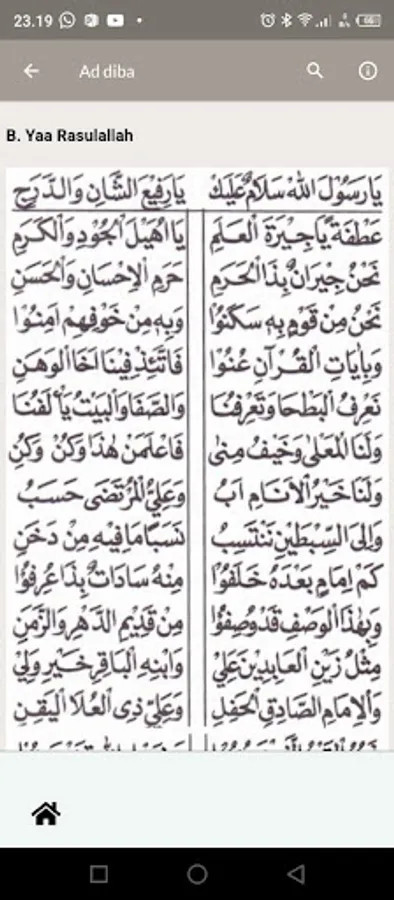 23.19
66
Ad diba
B. Yaa Rasulallah
يَارَسُوْلَ اللهْ سَلَامٌ عَلَيْكَ يَارَفِيْعَ الشَّانِ وَالدَّرَجِ
عَطْفَةً يَّاجِيْرَةَ الْعَلَمِ يَا اُهَيْلَ الْجُوْدِ وَالْكَرَمِ
نَحْنُ جِيْرَانٌ بِذَا الْحَرَمِ حَرَمِ الْاِحْسَانِ وَالْحَسَنِ
نَحْنُ مِنْ قَوْمٍ بِهٖ سَكَنُوْا وَبِهٖ مِنْ خَوْفِهِمْ اَمِنُوْا
وَبِاٰيَاتِ الْقُرْاٰنِ عُنُوْا فَاتَّئِدْ فِيْنَا اَخَا الْوَهَنِ
نَعْرِفُ الْبَطْحَا وَتَعْرِفُنَا وَالصَّفَا وَالْبَيْتُ يَأْلَفُنَا
وَلَنَا الْمَعْلٰى وَخَيْفُ مِنٰى فَاعْلَمَنْ هٰذَا وَكُنْ وَكُنِ
وَلَنَا خَيْرُ الْاَنَامِ اَبُ وَعَلِيُّ الْمُرْتَضٰى حَسَبُ
وَاِلَى السِّبْطَيْنِ نَنْتَسِبُ نَسَبًا مَا فِيْهِ مِنْ دَخَنِ
كَمْ اِمَامٍ بَعْدَهُ خَلَفُوْا مِنْهُ سَادَاتٌ بِذَا عُرِفُوْا
وَبِهٰذَا الْوَصْفِ قَدْ وُصِفُوْا مِنْ قَدِيْمِ الدَّهْرِ وَالزَّمَنِ
مِثْلُ زَيْنِ الْعَابِدِيْنَ عَلِيْ وَابْنِهِ الْبَاقِرِ خَيْرِ وَلِيْ
وَالْاِمَامِ الصَّادِقِ الْحَفِلِ وَعَلِيٍّ ذِى الْعُلَا الْيَقِنِ